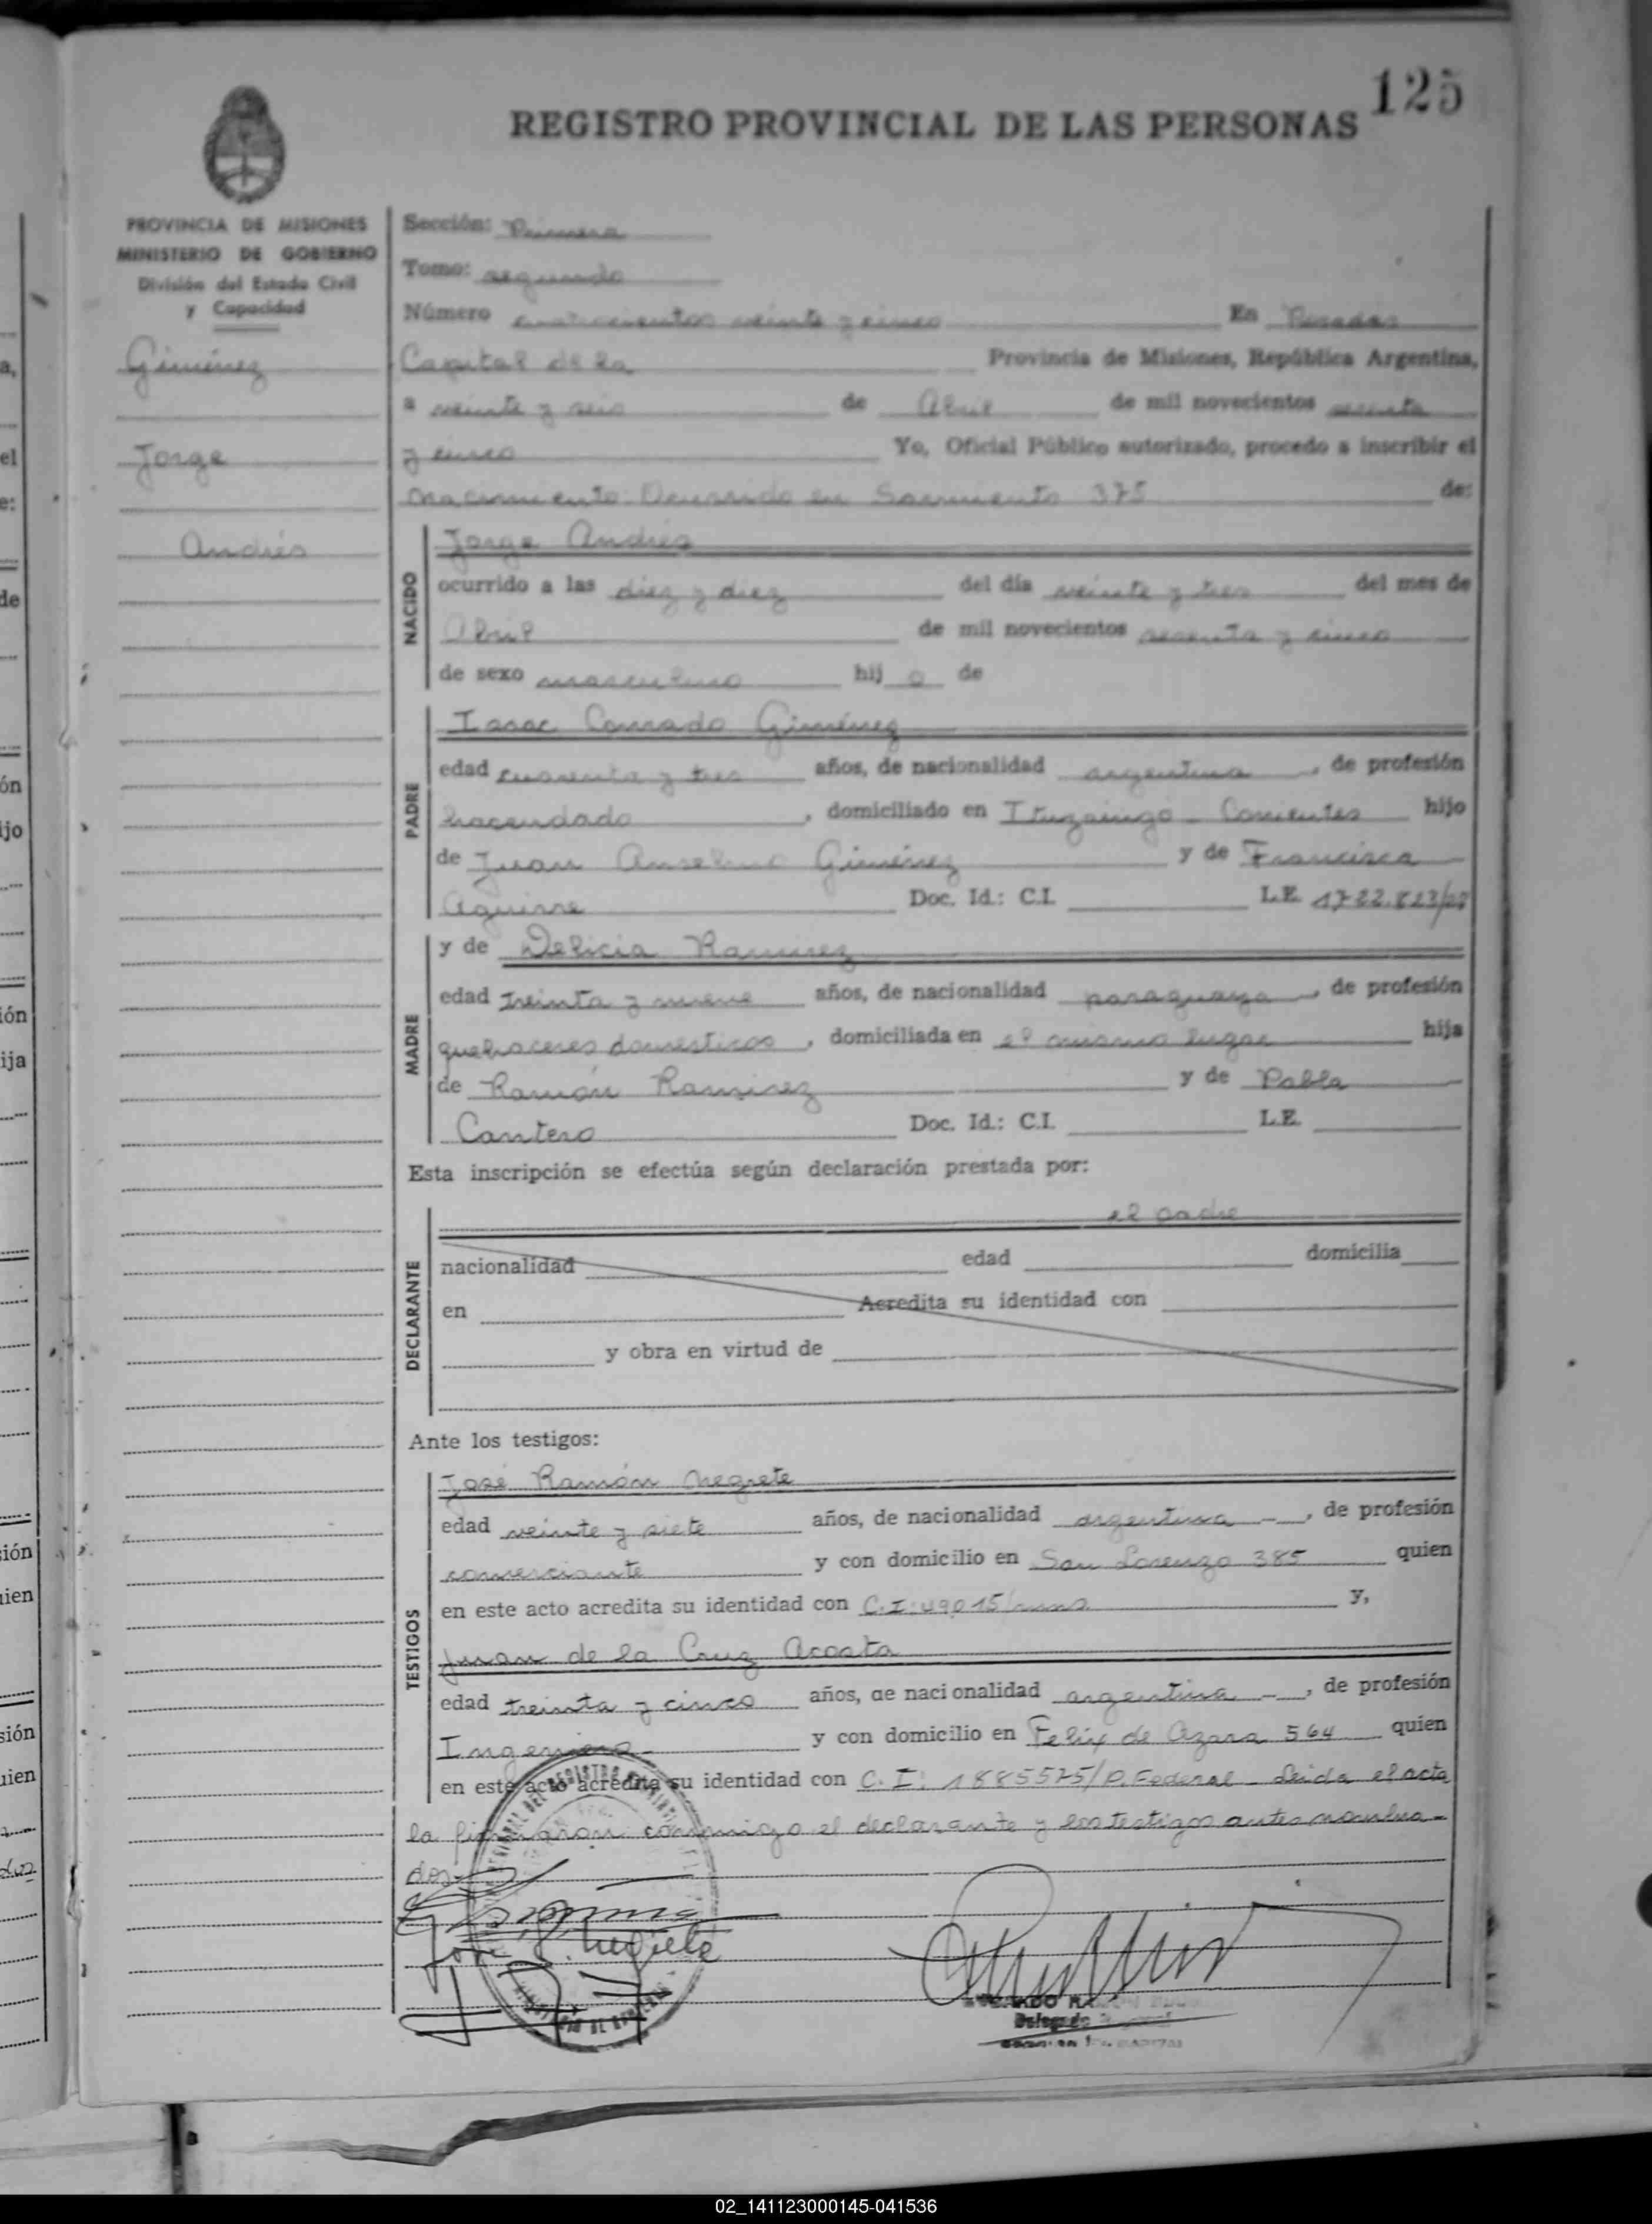 125
REGISTRO PROVINCIAL DE LAS PERSONAS
PROVINCIA DE MISIONES
MINISTERIO DE GOBIERNO
División del Estado Civil
y Capacidad
Giménez
Jorge
Andrés
Sección: Primera
Tomo: segundo
Número cuatrocientos veinte y cinco En Posadas
Capital de la Provincia de Misiones, República Argentina,
a veinte y seis de Abril de mil novecientos sesenta
y cinco Yo, Oficial Público autorizado, procedo a inscribir el
nacimiento: Ocurrido en Sarmiento 375 de:
NACIDO
Jorge Andrés
ocurrido a las diez y diez del día veinte y tres del mes de
Abril de mil novecientos sesenta y cinco
de sexo masculino hij o de
PADRE
Isaac Conrado Giménez
edad cuarenta y tres años, de nacionalidad argentina, de profesión
hacendado, domiciliado en Ituzaingó - Corrientes hijo
de Juan Anselmo Giménez y de Francisca
Aguirre Doc. Id.: C.I. L.E. 1722.823/
MADRE
y de Delicia Ramirez
edad treinta y nueve años, de nacionalidad paraguaya, de profesión
quehaceres domesticos, domiciliada en el mismo lugar hija
de Ramón Ramirez y de Pabla
Cantero Doc. Id.: C.I. L.E.
Esta inscripción se efectúa según declaración prestada por:
DECLARANTE
el padre
nacionalidad edad domicilia
en Acredita su identidad con
y obra en virtud de
Ante los testigos:
TESTIGOS
José Ramón Negrete
edad veinte y siete años, de nacionalidad argentina -, de profesión
comerciante y con domicilio en San Lorenzo 385 quien
en este acto acredita su identidad con C.I: 49015/ y,
Juan de la Cruz Acosta
edad treinta y cinco años, de nacionalidad argentina -, de profesión
Ingeniero y con domicilio en Felix de Azara 564 quien
en este acto acredita su identidad con C.I: 1885575/P. Federal - Leida el acta
la firmaron conmigo el declarante y los testigos antes nombra-
dos
José R. Negrete
02_141123000145-041536